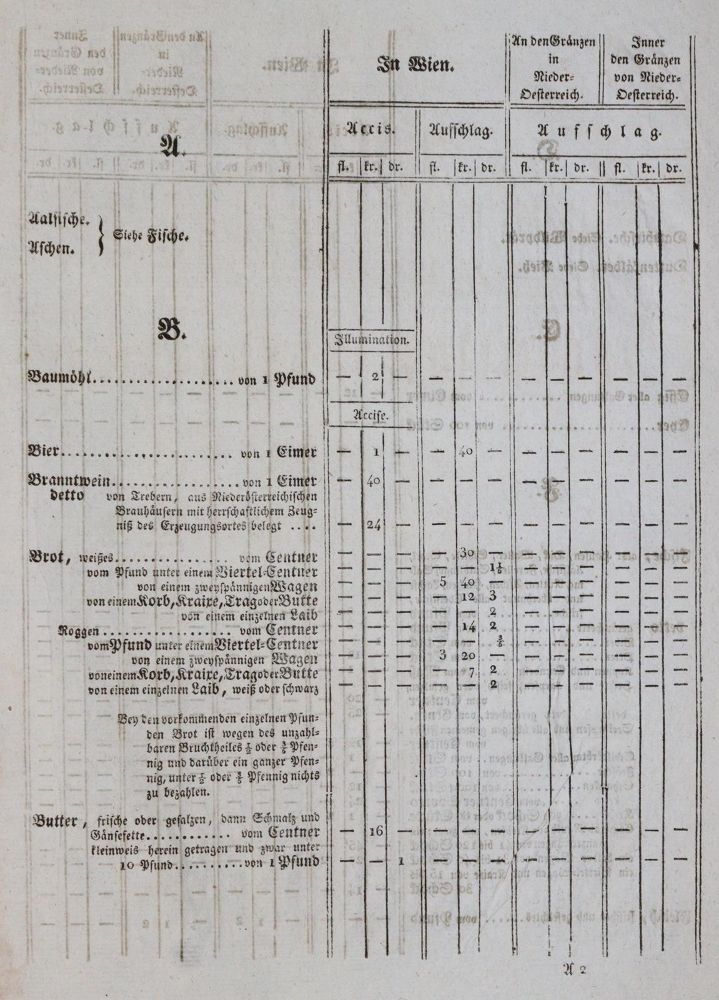 In Wien.
An den Gränzen
in
Nieder-
Oesterreich.
Inner
den Gränzen
von Nieder-
Oesterreich.
Accis. Aufschlag. Aufschlag.
fl. kr. dr. fl. kr. dr. fl. kr. dr. fl. kr. dr.
A.
Aalfische.
Aschen.
} Siehe Fische.
B.
Illumination.
Baumöhl.................... von 1 Pfund — 2 — — — — — — — — — —
Accise.
Bier........................ von 1 Eimer — 1 — — 40 — — — — — — —
Branntwein................... von 1 Eimer — 40 — — — — — — — — — —
detto von Trebern, aus Niederösterreichischen
Brauhäusern mit herrschaftlichem Zeug-
niß des Erzeugungsortes belegt .... — 24 — — — — — — — — — —
Brot, weißes................ vom Centner — — — — 30 — — — — — — —
vom Pfund unter einem Viertel-Centner — — — — — 1½ — — — — — —
von einem zweyspännigen Wagen — — — 5 40 — — — — — — —
von einem Korb, Kraixe, Trag oder Butte — — — — 12 3 — — — — — —
von einem einzelnen Laib — — — — — 2 — — — — — —
Roggen.................. vom Centner — — — — 14 2 — — — — — —
vom Pfund unter einem Viertel-Centner — — — — — — — — — — —
von einem zweyspännigen Wagen — — — 3 20 — — — — — — —
von einem Korb, Kraixe, Trag oder Butte — — — — 7 2 — — — — — —
von einem einzelnen Laib, weiß oder schwarz — — — — — 2 — — — — — —
Bey den vorkommenden einzelnen Pfun-
den Brot ist wegen des unzahl-
baren Bruchtheiles ½ oder Pfen-
nig und darüber ein ganzer Pfen-
nig, unter ½ oder Pfennig nichts
zu bezahlen.
Butter, frische oder gesalzen, dann Schmalz und
Gänsefette............ vom Centner — 16 — — — — — — — — — —
kleinweis herein getragen und zwar unter
10 Pfund.......... von 1 Pfund — — 1 — — — — — — — — —
A 2